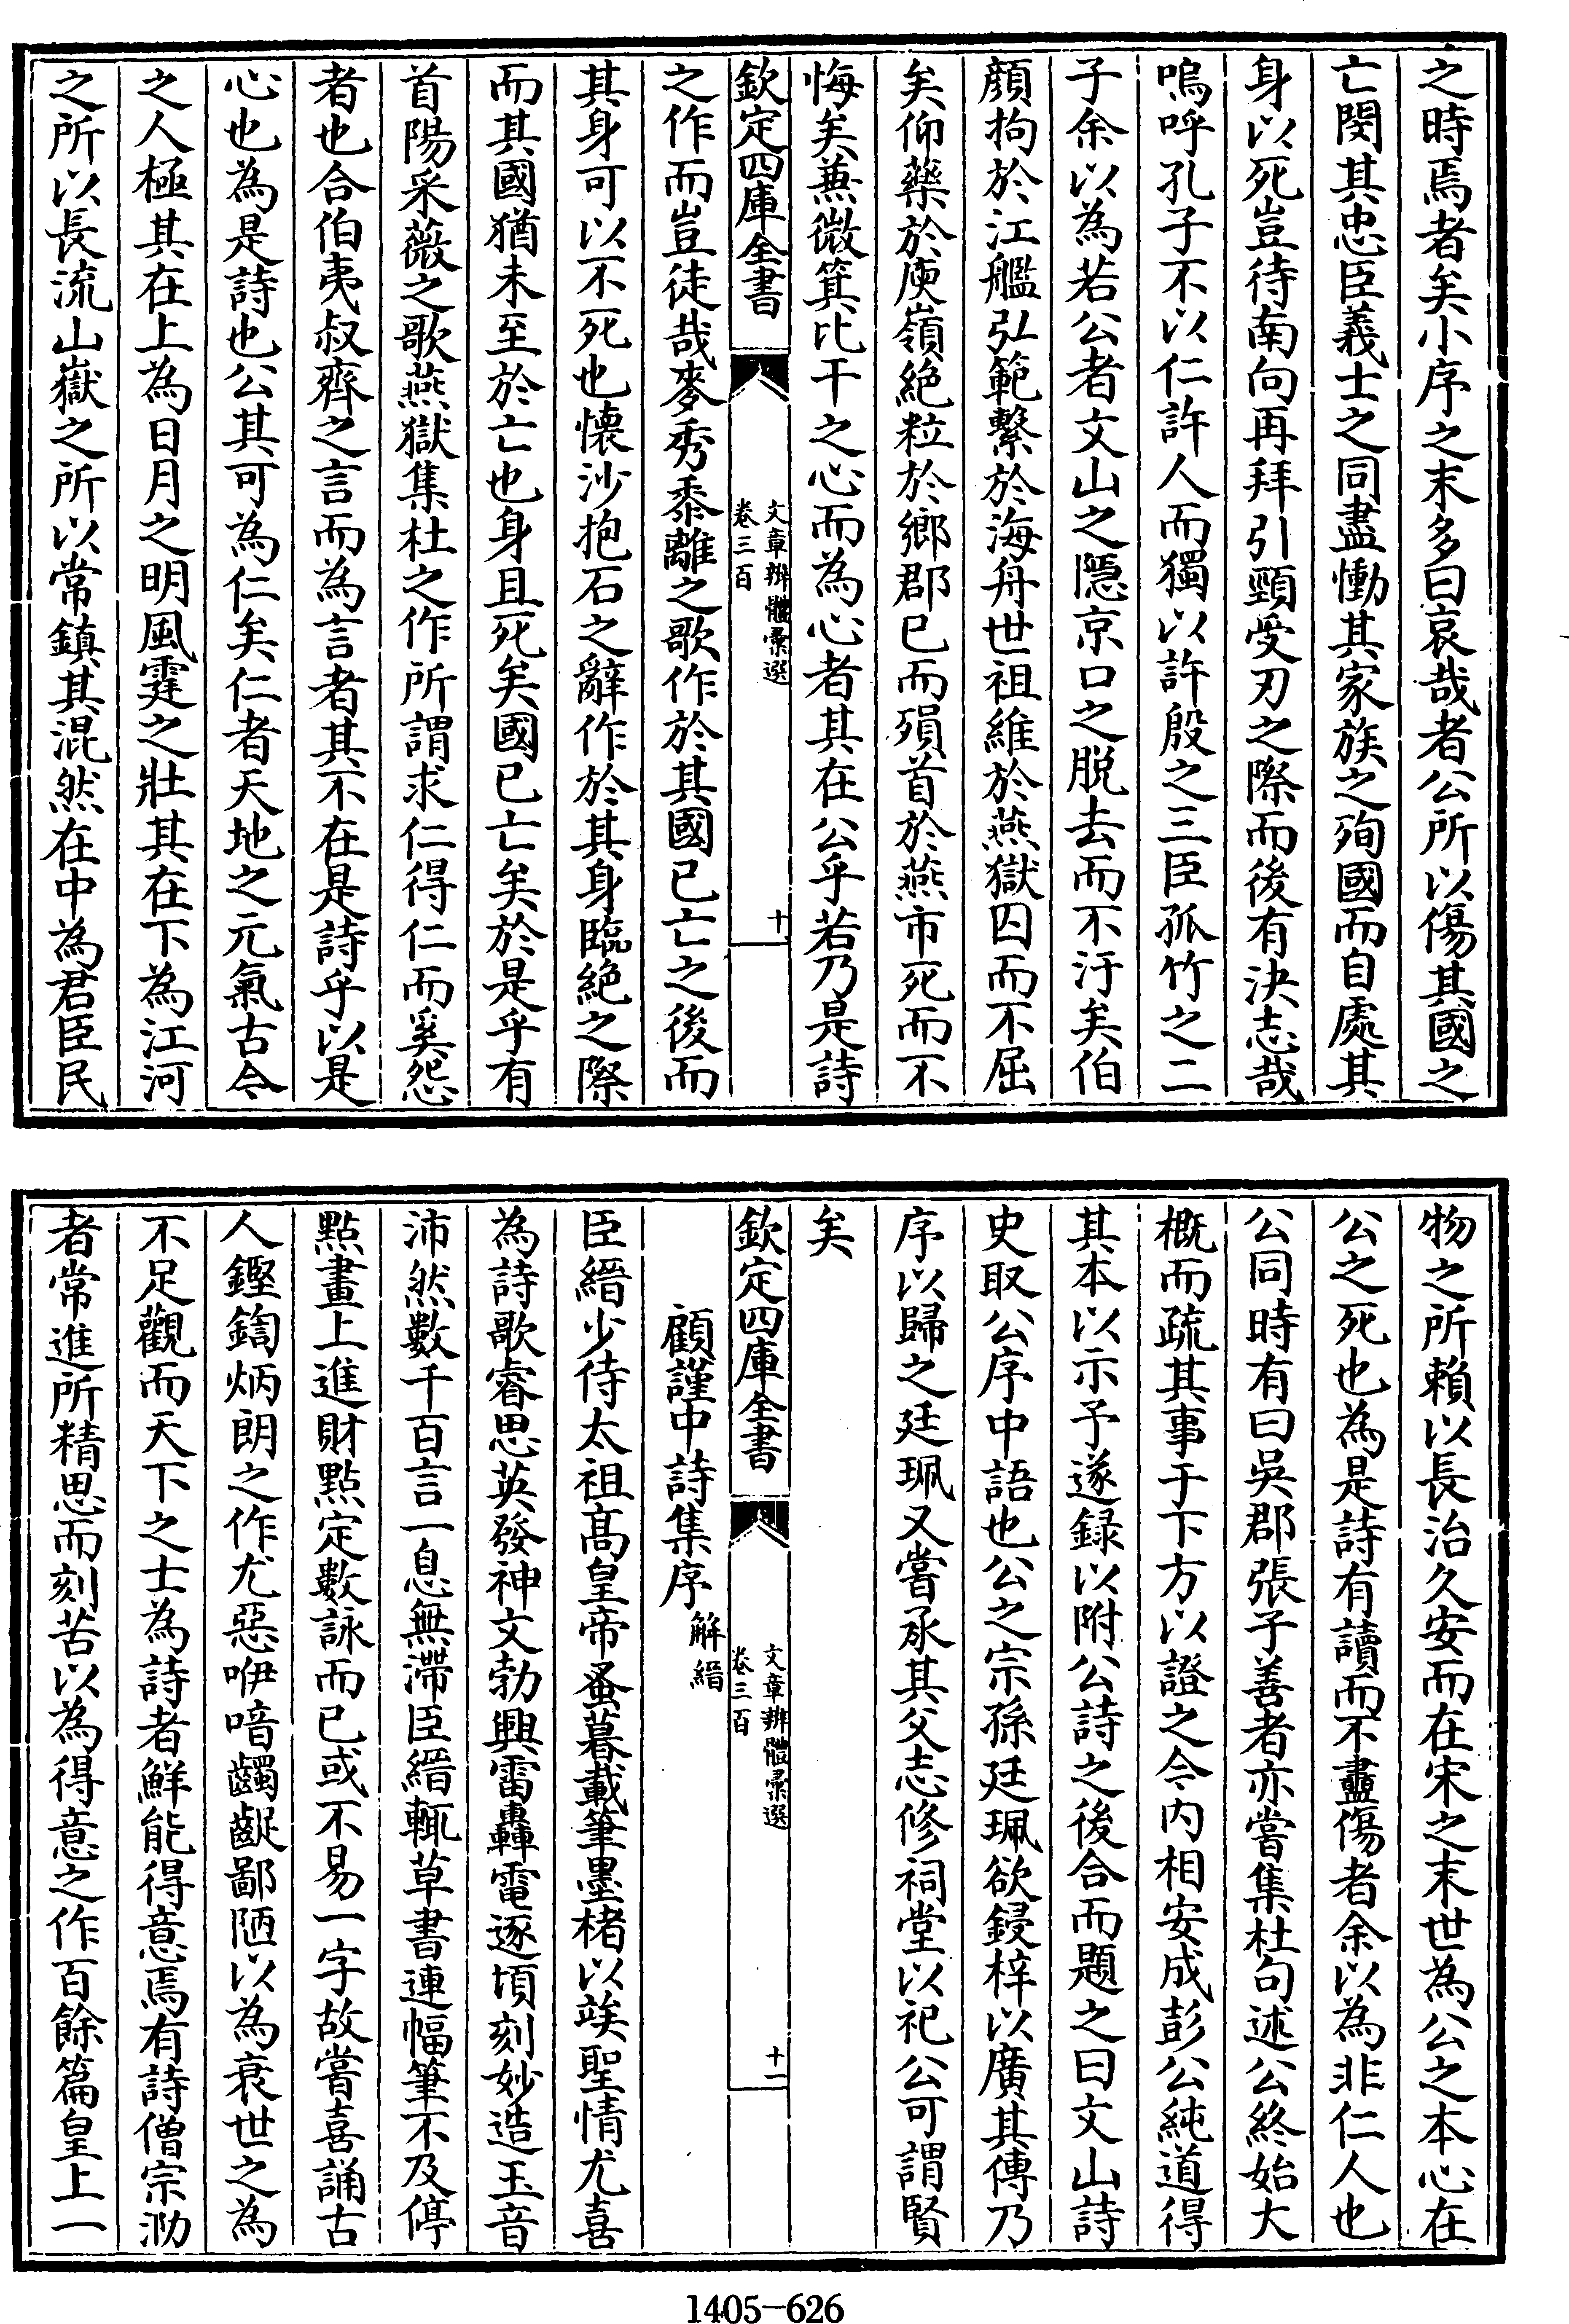 之時焉者矣小序之末多曰哀哉者公所以傷其國之
亡閔其忠臣義士之同盡慟其家族之殉國而自處其
身以死豈待南向再拜引頸受刃之際而後有決志哉
嗚呼孔子不以仁許人而獨以許殷之三臣孤竹之二
子余以為若公者文山之隱京口之脱去而不汙矣伯
顏拘於江艦弘範繫於海舟世祖維於燕獄囚而不屈
矣仰藥於庾嶺絶粒於鄉郡已而殞首於燕市死而不
悔矣蕪微箕比干之心而為心者其在公乎若乃是詩
欽定四庫全書
文章辨體彚選
卷三百
十
之作而豈徒哉麥秀黍離之歌作於其國已亡之後而
其身可以不死也懷沙抱石之辭作於其身臨絶之際
而其國猶未至於亡也身且死矣國已亡矣於是乎有
首陽采薇之歌燕獄集杜之作所謂求仁得仁而奚怨
者也合伯夷叔齊之言而為言者其不在是詩乎以是
心也為是詩也公其可為仁矣仁者天地之元氣古今
之人極其在上為日月之明風霆之壯其在下為江河
之所以長流山嶽之所以常鎮其混然在中為君臣民
物之所賴以長治久安而在宋之末世為公之本心在
公之死也為是詩有讀而不盡傷者余以為非仁人也
公同時有曰吳郡張子善者亦嘗集杜句述公終始大
概而疏其事于下方以證之今内相安成彭公純道得
其本以示予遂録以附公詩之後合而題之曰文山詩
史取公序中語也公之宗孫廷珮欲鋟梓以廣其傳乃
序以歸之廷珮又嘗承其父志修祠堂以祀公可謂賢
矣
欽定四庫全書
文章辨體彚選
卷三百
十一
顧謹中詩集序 解縉
臣縉少侍太祖髙皇帝蚤暮載筆墨楮以竢聖情尤喜
為詩歌睿思英發神文勃興雷轟電逐頃刻妙造玉音
沛然數千百言一息無滯臣縉輒草書連幅筆不及停
點畫上進財點定數詠而已或不易一字故嘗喜誦古
人鏗鍧炳朗之作尤惡咿喑齷齪鄙陋以為衰世之為
不足觀而天下之士為詩者鮮能得意焉有詩僧宗泐
者常進所精思而刻苦以為得意之作百餘篇皇上一
1405-626